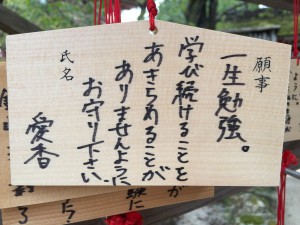 願事
一生勉強。
学び続けることを
あきらめることが
ありませんように
お守り下さい
氏名
愛香